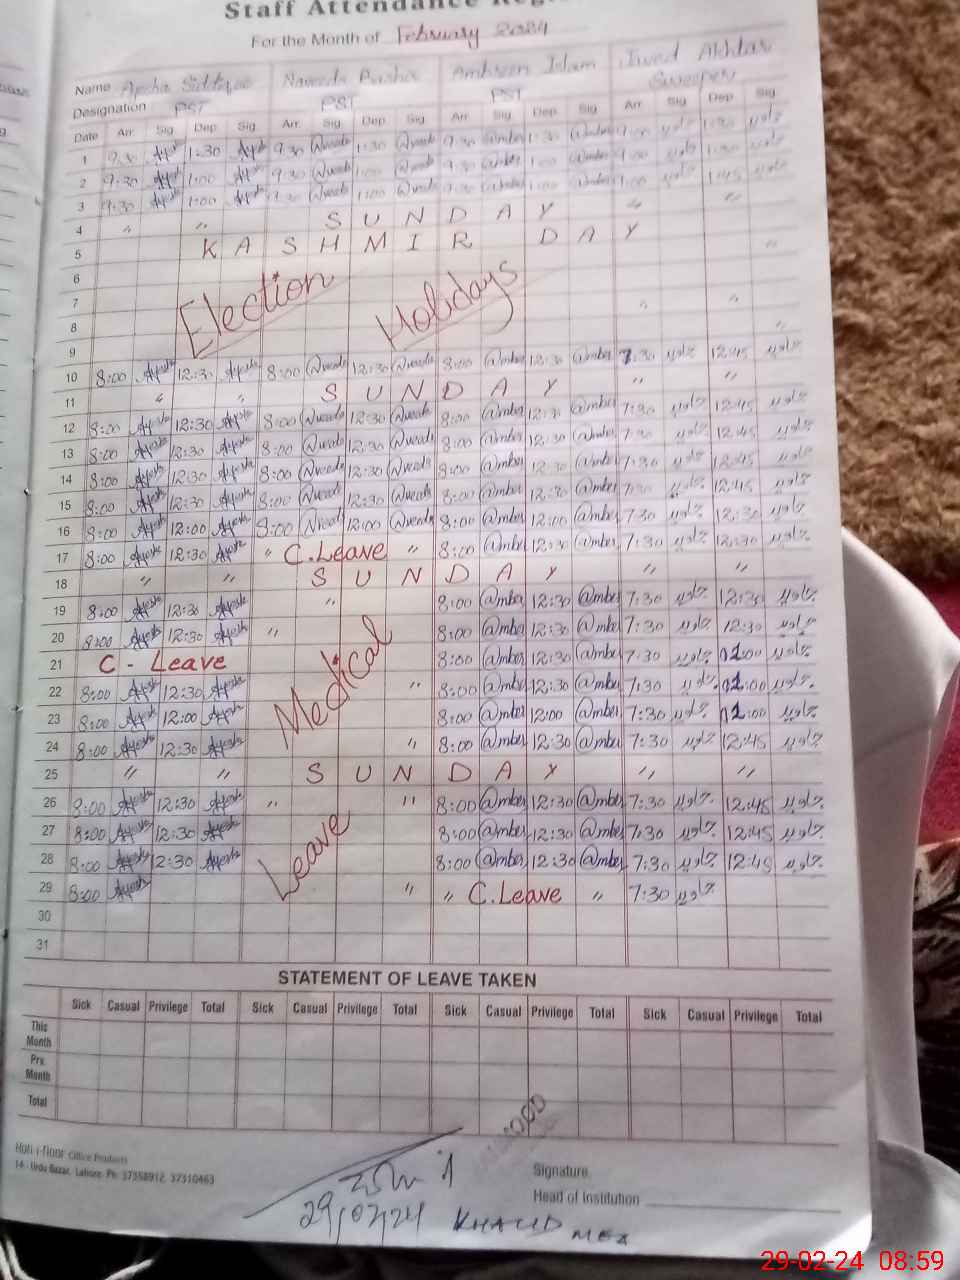 Staff Attendance Reg
For the Month of February 2024
Name Ayesha Siddiqa Naveeda Pasha Ambreen Islam Javed Akhtar
Designation PST PST PST Sweeper
Date Arr. Sig Dep. Sig Arr. Sig. Dep. Sig. Arr. Sig. Dep. Sig. Arr. Sig. Dep. Sig.
1 9:30 1:30 9:30 1:30 9:30 1:30 9:00 1:30
2 9:30 1:00 9:30 1:00 9:30 1:00 9:00
3 9:30 1:00 9:30 1:00 9:30 1:00 9:00 1:45
4 " " SUNDAY " "
5 KASHMIR DAY
6
7 Election Holidays
8
9
10 8:00 Ayesha 12:30 Ayesha 8:00 Naveeda 12:30 Naveeda 8:00 @mber 12:30 @mber 7:30 جاوید 12:45 جاوید
11 " " SUNDAY " "
12 8:00 Ayesha 12:30 Ayesha 8:00 Naveeda 12:30 Naveeda 8:00 @mber 12:30 @mber 7:30 جاوید 12:45 جاوید
13 8:00 Ayesha 12:30 Ayesha 8:00 Naveeda 12:30 Naveeda 8:00 @mber 12:30 @mber 7:30 جاوید 12:45 جاوید
14 8:00 Ayesha 12:30 Ayesha 8:00 Naveeda 12:30 Naveeda 8:00 @mber 12:30 @mber 7:30 جاوید 12:45 جاوید
15 8:00 Ayesha 12:30 Ayesha 8:00 Naveeda 12:30 Naveeda 8:00 @mber 12:30 @mber 7:30 جاوید 12:45 جاوید
16 8:00 Ayesha 12:00 Ayesha 8:00 Naveeda 12:00 Naveeda 8:00 @mber 12:00 @mber 7:30 جاوید 12:30 جاوید
17 8:00 Ayesha 12:30 Ayesha " C.Leave " 8:00 @mber 12:30 @mber 7:30 جاوید 12:30 جاوید
18 " " SUNDAY " "
19 8:00 Ayesha 12:30 Ayesha " 8:00 @mber 12:30 @mber 7:30 جاوید 12:30 جاوید
20 8:00 Ayesha 12:30 Ayesha " 8:00 @mber 12:30 @mber 7:30 جاوید 12:30 جاوید
21 C - Leave Medical 8:00 @mber 12:30 @mber 7:30 جاوید 01:00 جاوید
22 8:00 Ayesha 12:30 Ayesha " 8:00 @mber 12:30 @mber 7:30 جاوید 01:00 جاوید
23 8:00 Ayesha 12:00 Ayesha 8:00 @mber 12:00 @mber 7:30 جاوید 01:00 جاوید
24 8:00 Ayesha 12:30 Ayesha " 8:00 @mber 12:30 @mber 7:30 جاوید 12:45 جاوید
25 " " SUNDAY " "
26 8:00 Ayesha 12:30 Ayesha " " 8:00 @mber 12:30 @mber 7:30 جاوید 12:45 جاوید
27 8:00 Ayesha 12:30 Ayesha Leave 8:00 @mber 12:30 @mber 7:30 جاوید 12:45 جاوید
28 8:00 Ayesha 12:30 Ayesha 8:00 @mber 12:30 @mber 7:30 جاوید 12:45 جاوید
29 8:00 Ayesha " " C.Leave " 7:30 جاوید
30
31
STATEMENT OF LEAVE TAKEN
Sick Casual Privilege Total Sick Casual Privilege Total Sick Casual Privilege Total Sick Casual Privilege Total
This Month
Prv. Month
Total
Office Products
14 - Urdu Bazar, Lahore. Ph: 37358912, 37310463
Signature
Head of Institution
29/02/24 KHALID MEA
29-02-24 08:59